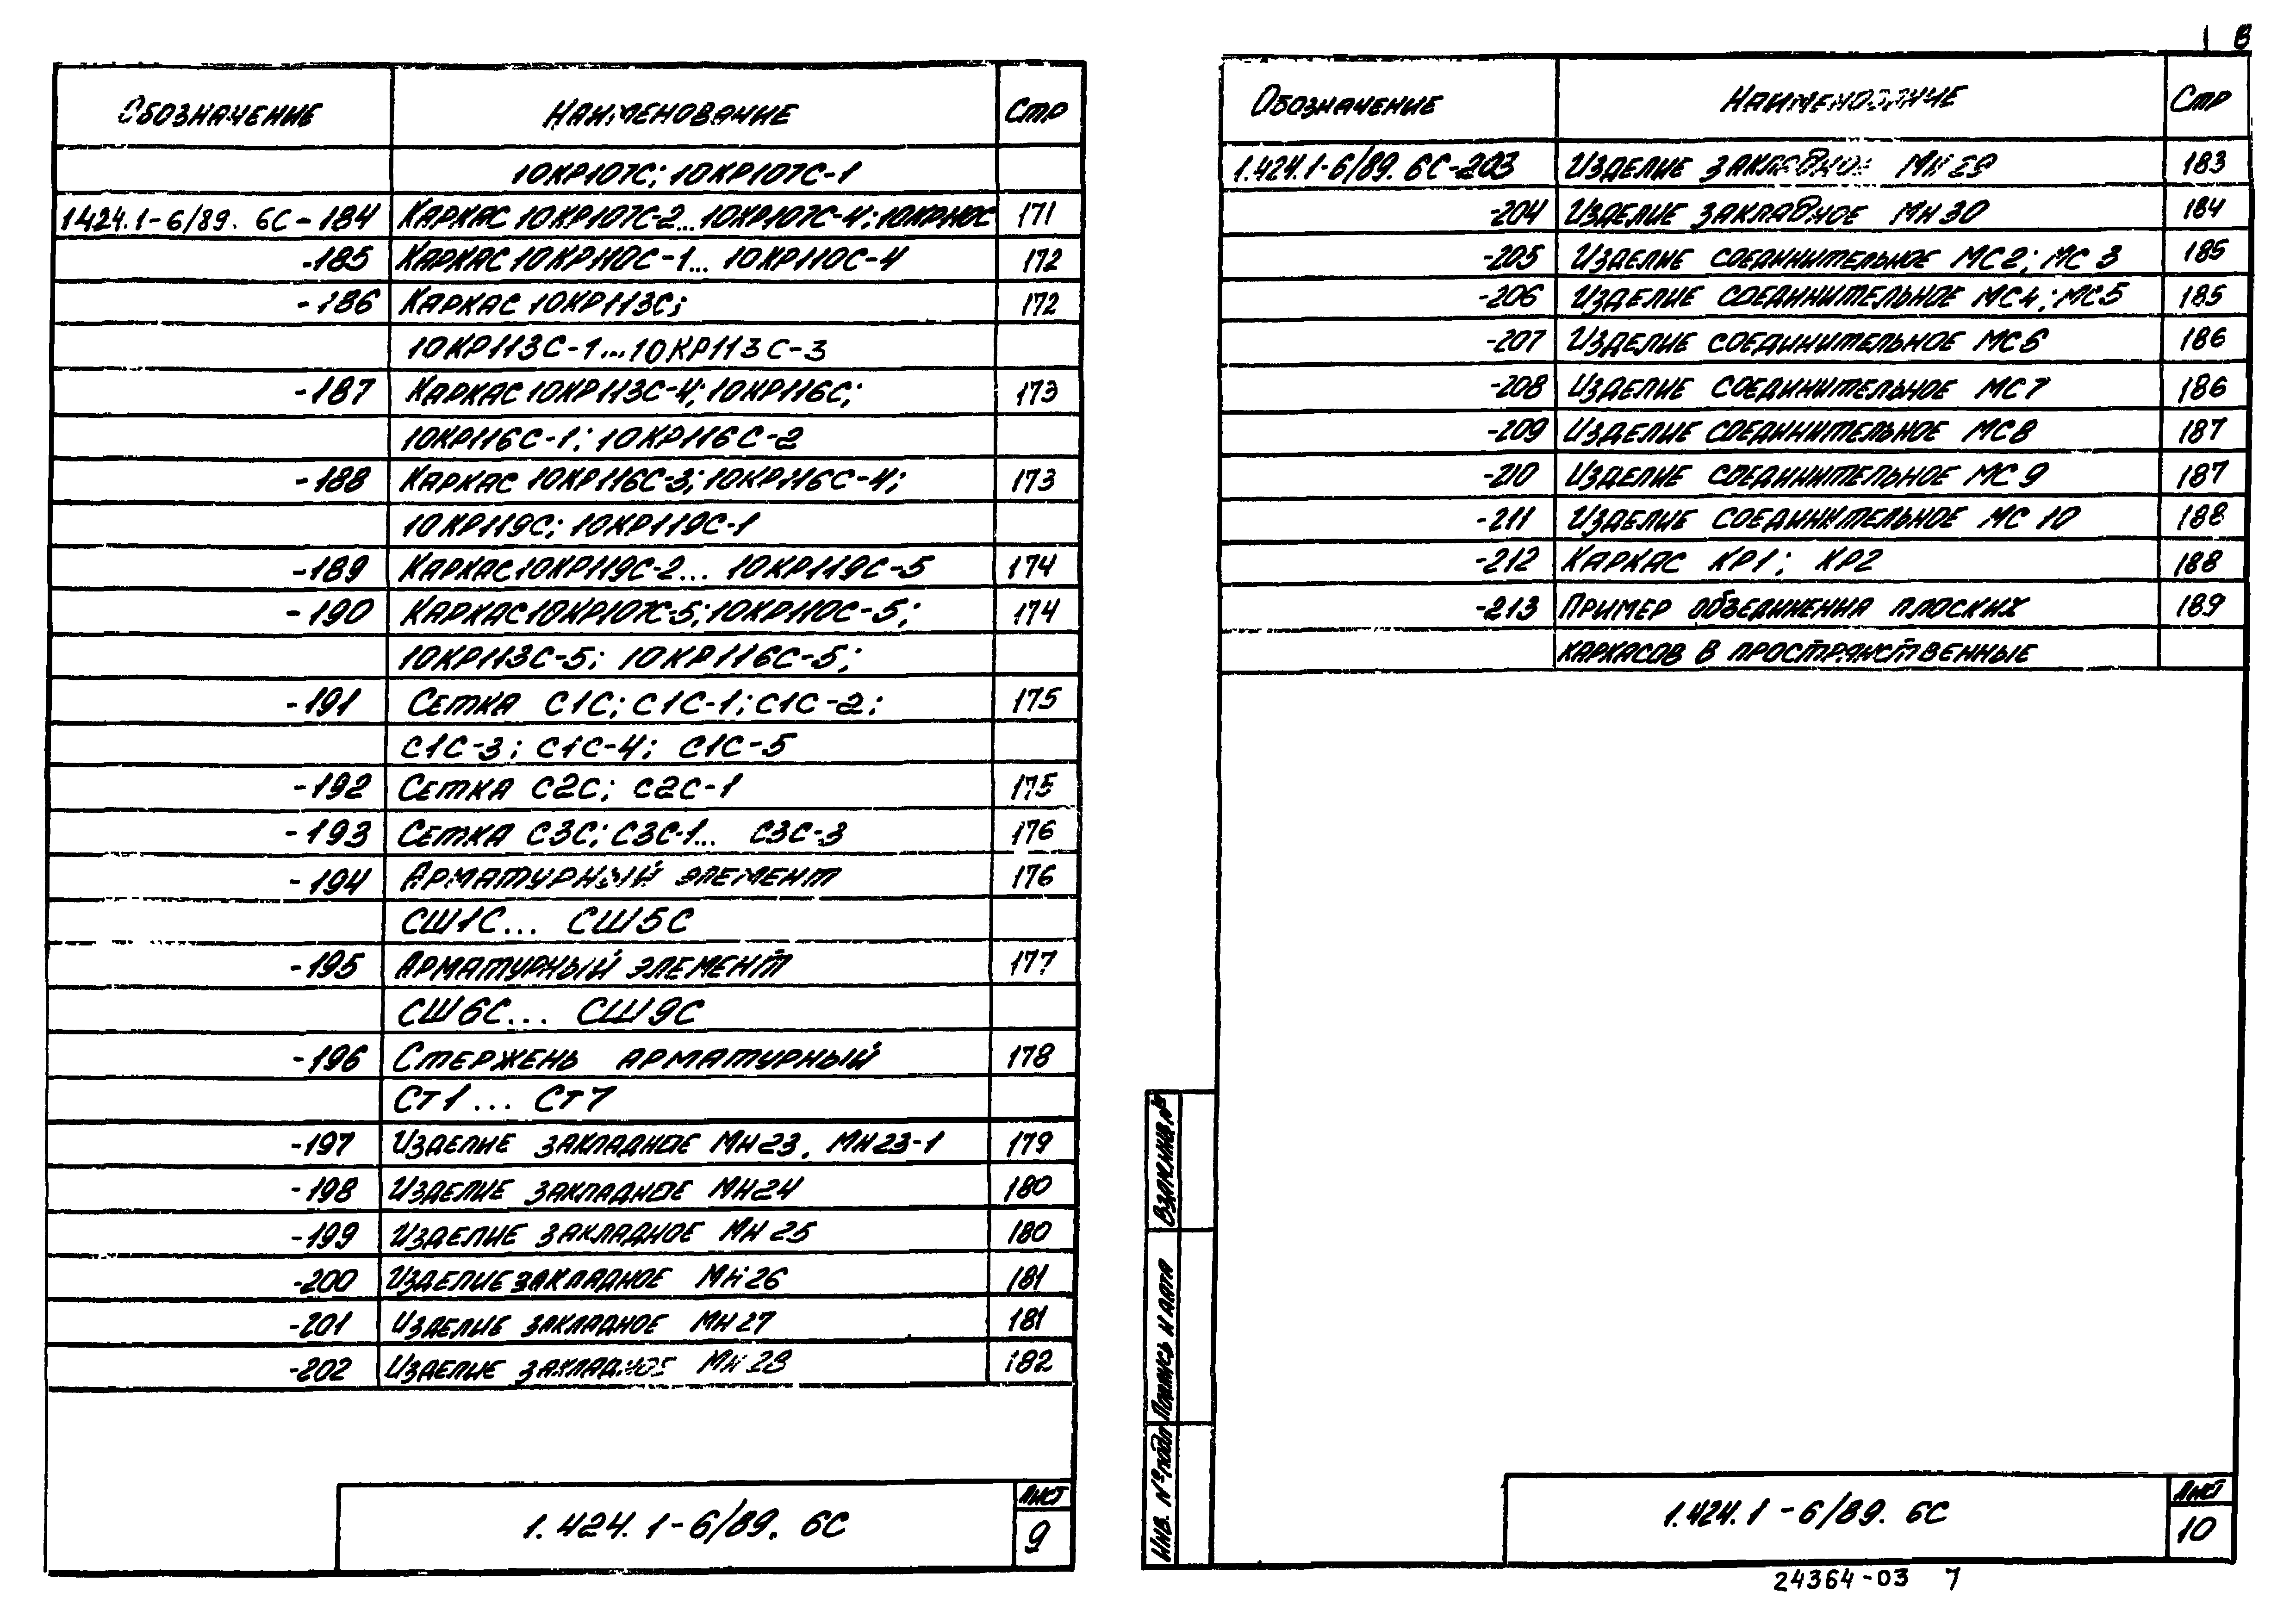 Обозначение Наименование Стр
10КР107С; 10КР107С-1
1424.1-6/89. 6С-184 Каркас 10КР107С-2...10КР107С-4; 10КР110С 171
-185 Каркас 10КР110С-1... 10КР110С-4 172
-186 Каркас 10КР113С; 172
10КР113С-1...10КР113С-3
-187 Каркас 10КР113С-4; 10КР116С; 173
10КР116С-1; 10КР116С-2
-188 Каркас 10КР116С-3; 10КР116С-4; 173
10КР119С; 10КР119С-1
-189 Каркас 10КР119С-2... 10КР119С-5 174
-190 Каркас 10КР107С-5; 10КР110С-5; 174
10КР113С-5; 10КР116С-5;
-191 Сетка С1С; С1С-1; С1С-2; 175
С1С-3; С1С-4; С1С-5
-192 Сетка С2С; С2С-1 175
-193 Сетка С3С; С3С-1... С3С-3 176
-194 Арматурный элемент 176
СШ1С... СШ5С
-195 Арматурный элемент 177
СШ6С... СШ9С
-196 Стержень арматурный 178
Ст1... Ст7
-197 Изделие закладное МН23, МН23-1 179
-198 Изделие закладное МН24 180
-199 Изделие закладное МН25 180
-200 Изделие закладное МН26 181
-201 Изделие закладное МН27 181
-202 Изделие закладное МН28 182
1.424.1-6/89. 6С
Лист
9
8
Обозначение Наименование Стр
1.424.1-6/89. 6С-203 Изделие закладное МН29 183
-204 Изделие закладное МН30 184
-205 Изделие соединительное МС2; МС3 185
-206 Изделие соединительное МС4; МС5 185
-207 Изделие соединительное МС6 186
-208 Изделие соединительное МС7 186
-209 Изделие соединительное МС8 187
-210 Изделие соединительное МС9 187
-211 Изделие соединительное МС10 188
-212 Каркас КР1; КР2 188
-213 Пример объединения плоских 189
каркасов в пространственные
Взам.инв.№
Подпись и дата
Инв. № подл
1.424.1-6/89. 6С
Лист
10
24364-03 7